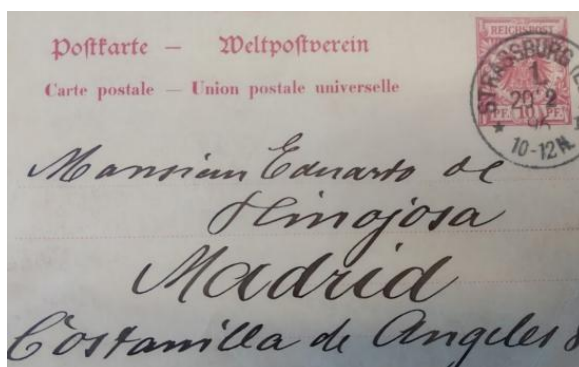 Postkarte — Weltpostverein
Carte postale — Union postale universelle
REICHSPOST
PF. 10 PF.
STRASSBURG
1.
20 2
10-12N.
Monsieur Eduardo de
Hinojosa
Madrid
Costanilla de Angeles